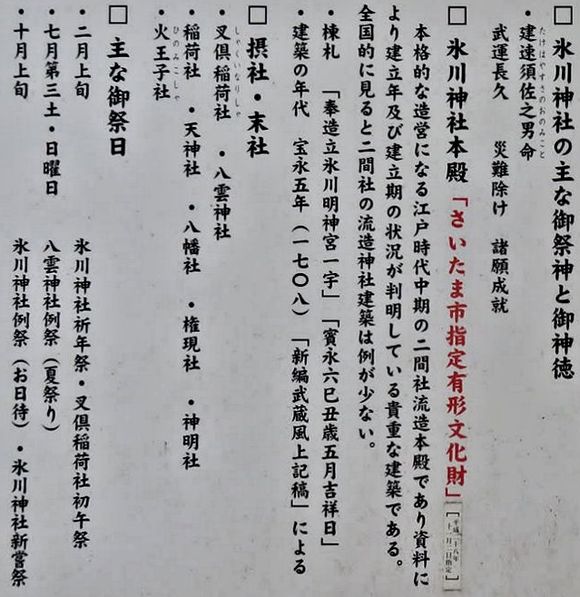 □ 氷川神社の主な御祭神と御神徳
・建速須佐之男命
たけはやすさのおのみこと
武運長久 災難除け 諸願成就
□ 氷川神社本殿「さいたま市指定有形文化財」
[平成二十八年
十一月二日指定]
本格的な造営になる江戸時代中期の二間社流造本殿であり資料に
より建立年及び建立期の状況が判明している貴重な建築である。
全国的に見ると二間社の流造神社建築は例が少ない。
・棟札 「奉造立氷川明神宮一宇」「寳永六巳丑歳五月吉祥日」
・建築の年代 宝永五年(一七〇八)「新編武蔵風土記稿」による
□ 摂社・末社
・叉倶稲荷社 ・八雲神社
しゃぐいなりしゃ
・稲荷社 ・天神社 ・八幡社 ・権現社 ・神明社
・火王子社
ひのみこしゃ
□ 主な御祭日
・二月上旬 氷川神社祈年祭・叉倶稲荷社初午祭
・七月第三土・日曜日 八雲神社例祭(夏祭り)
・十月上旬 氷川神社例祭(お日待)・氷川神社新嘗祭